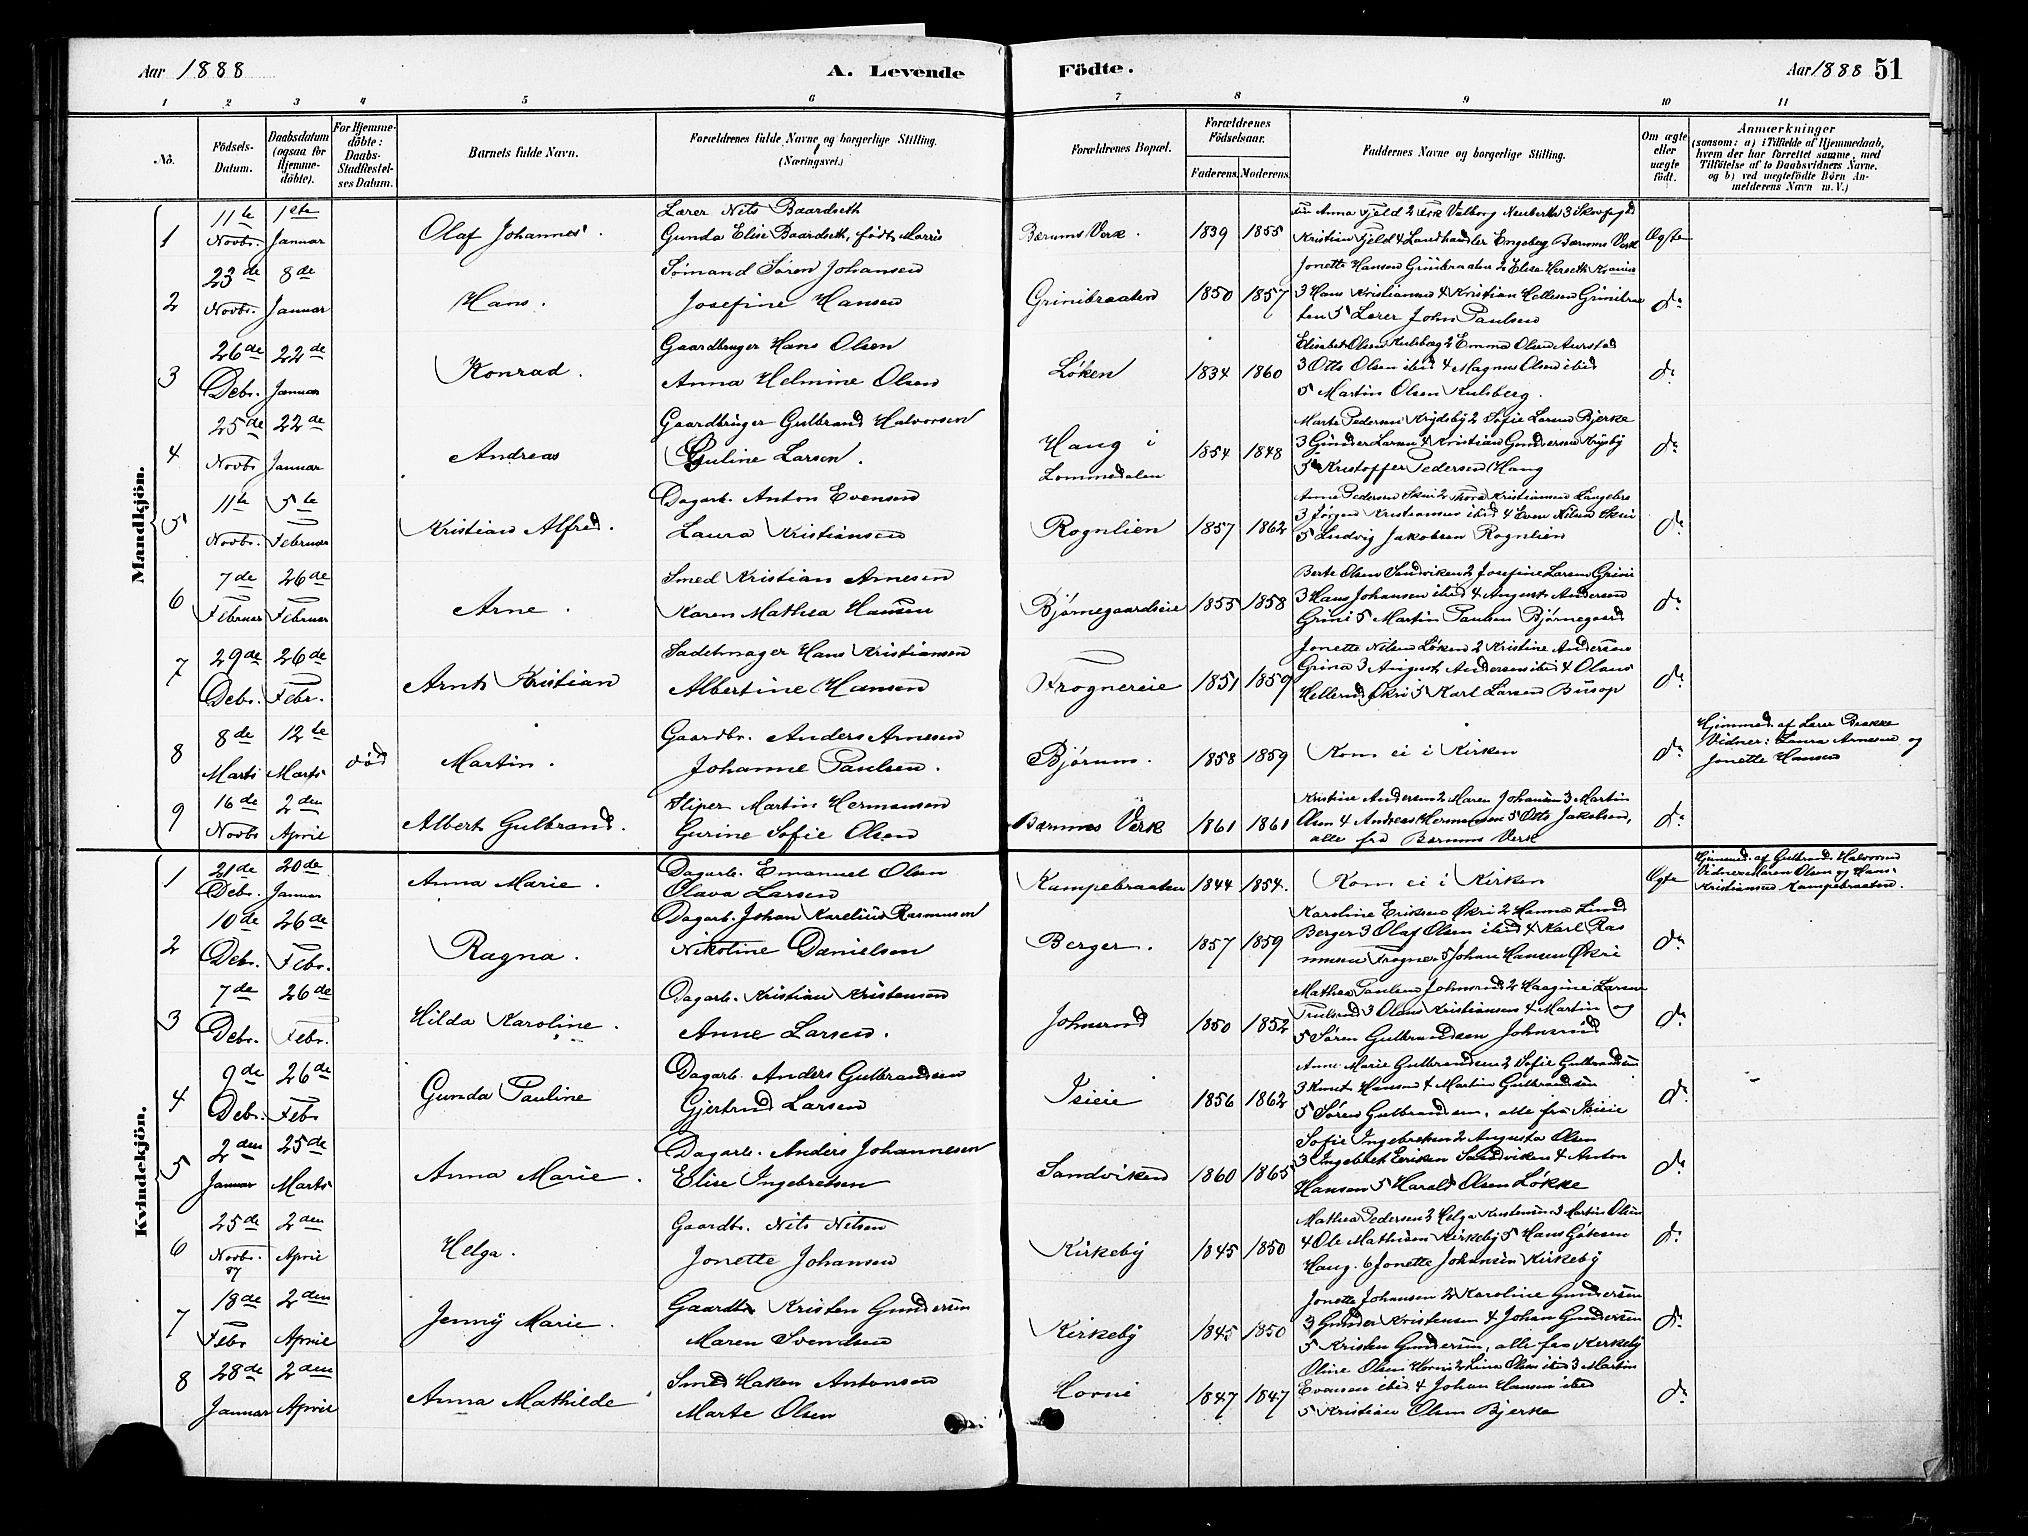 Aar 1888
A. Levende
Födte.
Aar 1888 51
1 2 3 4 5 6 7 8 9 10 11
No.
Födsels-Datum.
Daabsdatum (ogsaa for Hjemmedöbte).
For Hjemmedöbte: Daabs-Stadfæstelses Datum.
Barnets fulde Navn.
Forældrenes fulde Navne og borgerlige Stilling. (Næringsvei.)
Forældrenes Bopæl.
Forældrenes Födselsaar.
Faderens. Moderens.
Faddernes Navne og borgerlige Stilling.
Om ægte eller uægte födt.
Anmærkninger
(saasom: a) i Tilfælde af Hjemmedaab,
hvem der har forrettet samme, med
Tilföielse af to Daabsvidners Navne,
og b) ved uægtefödte Börn Anmelderens Navn m. V.)
Mandkjön.
1 11te Novbr. 1ste Januar Olaf Johannes. Lærer Nils Baardseth
Gunda Elise Baardseth, født Morris Bærums Verk. 1839 1855
Kristian Fjeld 4 Landhandler Engebeg Bærums Verk Ægte
2 23de Novbr. 8de Januar Hans. Sømand Søren Johansen
Josefine Hansen Grinibraaten 1850 1857 Jonette Hansen Grinibraaten 2 Elise Herseth
3 Hans Kristiansen 4 Kristian Hellesen Grinibraa
ten 5 Lærer John Paulsen do
3 26de Debr. 22de Januar Konrad. Gaardbruger Hans Olsen
Anna Helmine Olsen Løken 1834 1860 Elisabet Olsen Kulsbeg 2 Emma Olsen Aurstad
3 Otto Olsen ibid 4 Magnus Olsen ibid
5 Martin Olsen Kulsberg. do
4 25de Novbr 22de Januar Andreas Gaardbruger Gulbrand Halvorsen
Guline Larsen. Haug i Lommedalen 1854 1848 Marte Pedersen Krydsby 2 Sofie Larsen Bjerke
3 Gunder Larsen 4 Kristian Gundersen Krysby
5 Kristoffer Pedersen Haug do
5 11te Novbr. 5te Februar Kristian Alfred. Dagarb. Anton Evensen
Laura Kristiansen Rognlien 1857 1862 Anne Pedersen Skui 2 Thora Kristiansen
3 Jørgen Kristiansen ibid 4 Even Nilsen Skui
5 Ludvig Jakobsen Rognlien do
6 7de Februar 26de Februar Arne. Smed Kristian Arnesen
Karen Mathea Hansen Bjørnegaardseie 1855 1858 Berte Olsen Sandviken 2 Josefine Larsen Grini
3 Hans Johansen ibid 4 August Andersen
Grini 5 Martin Paulsen Bjørnegaard do
7 29de Debr. 26de Febr. Arnt Kristian Sadelmager Hans Kristiansen
Albertine Hansen Frognereie 1851 1859 Jonette Nilsen Løken 2 Kristine Andersen
Grina 3 August Andersen ibid 4 Olaus
Hellerud Økri 5 Karl Larsen Busop do
8 8de Marts 12te Marts død Martin. Gaardbr. Anders Arnesen
Johanne Paulsen. Bjørum. 1858 1859 Kom ei i Kirken do Hjemmed. af Lærer Brække
Vidner: Laura Arnesen og
Jonette Hansen
9 16de Novbr 2den April Albert Gulbrand. Sliper Martin Hermansen
Gurine Sofie Olsen Bærums Verk 1861 1861 Kristine Andersen 2 Maren Johansen 3 Martin
Olsen 4 Andreas Hermansen 5 Otto Jakobsen,
alle fra Bærums Verk do
Kvindekjön.
1 21de Debr. 20de Januar Anna Marie. Dagarb. Emanuel Olsen
Olava Larsen Kampebraaten 1844 1854. Kom ei i Kirken Ægte Hjemmed. af Gulbrand Halvorsen
Vidner: Maren Olsen og Hans
Kristiansen Kampebraaten.
2 10de Debr. 26de Febr. Ragna. Dagarb. Johan Karelius Rasmussen
Nikoline Danielsen Berger. 1857 1859 Karoline Eriksen Økri 2 Hanna Lund
Berger 3 Olaf Olsen ibid 4 Karl Ras
mussen Frogner 5 Johan Hansen Økri do
3 7de Debr. 26de Febr. Hilda Karoline. Dagarb. Kristian Kristensen
Anne Larsen. Johnsrud 1850 1852 Mathea Paulsen Johnsrud 2 Haagine Larsen
3 Olaus Kristiansen 4 Martin og
5 Søren Gulbrandsen Johnsrud do
4 9de Debr. 26de Febr Gunda Pauline Dagarb. Anders Gulbrandsen
Gjertrud Larsen Isieie 1856 1862 Anne Marie Gulbrandsen 2 Sofie Gulbrandsen
3 Knut Hansen 4 Martin Gulbrandsen
5 Søren Gulbrandsen, alle fra Isieie do
5 2den Januar 25de Marts Anna Marie. Dagarb. Anders Johannesen
Elise Ingebretsen Sandviken 1860 1865 Sofie Ingebretsen 2 Augusta Olsen
3 Ingebret Eriksen Sandviken 4 Anton
Hansen 5 Harald Olsen Løkke do
6 25de Novbr. 87 2den April Helga. Gaardbr. Nils Nilsen
Jonette Johansen Kirkeby 1845 1850 Mathea Pedersen 2 Helga Kristensen 3 Martin Olsen
4 Ole Mathisen Kirkeby 5 Hans Gotesen
Haug. 6 Jonette Johansen Kirkeby do
7 18de Febr 2den April Jenny Marie. Gaardbr Kristen Gundersen
Maren Svendsen Kirkeby 1845 1850 Jonette Johansen 2 Karoline Gundersen
3 Gunder Kristensen 4 Johan Gundersen
5 Kristen Gundersen, alle fra Kirkeby do
8 28de Januar 2den April Anna Mathilde Smed Haken Antonsen
Marte Olsen Horni 1847 1847 Oline Olsen Horni 2 Lina Olsen ibid 3 Martin
Evensen ibid 4 Johan Hansen ibid
5 Kristian Olsen Bjerke do